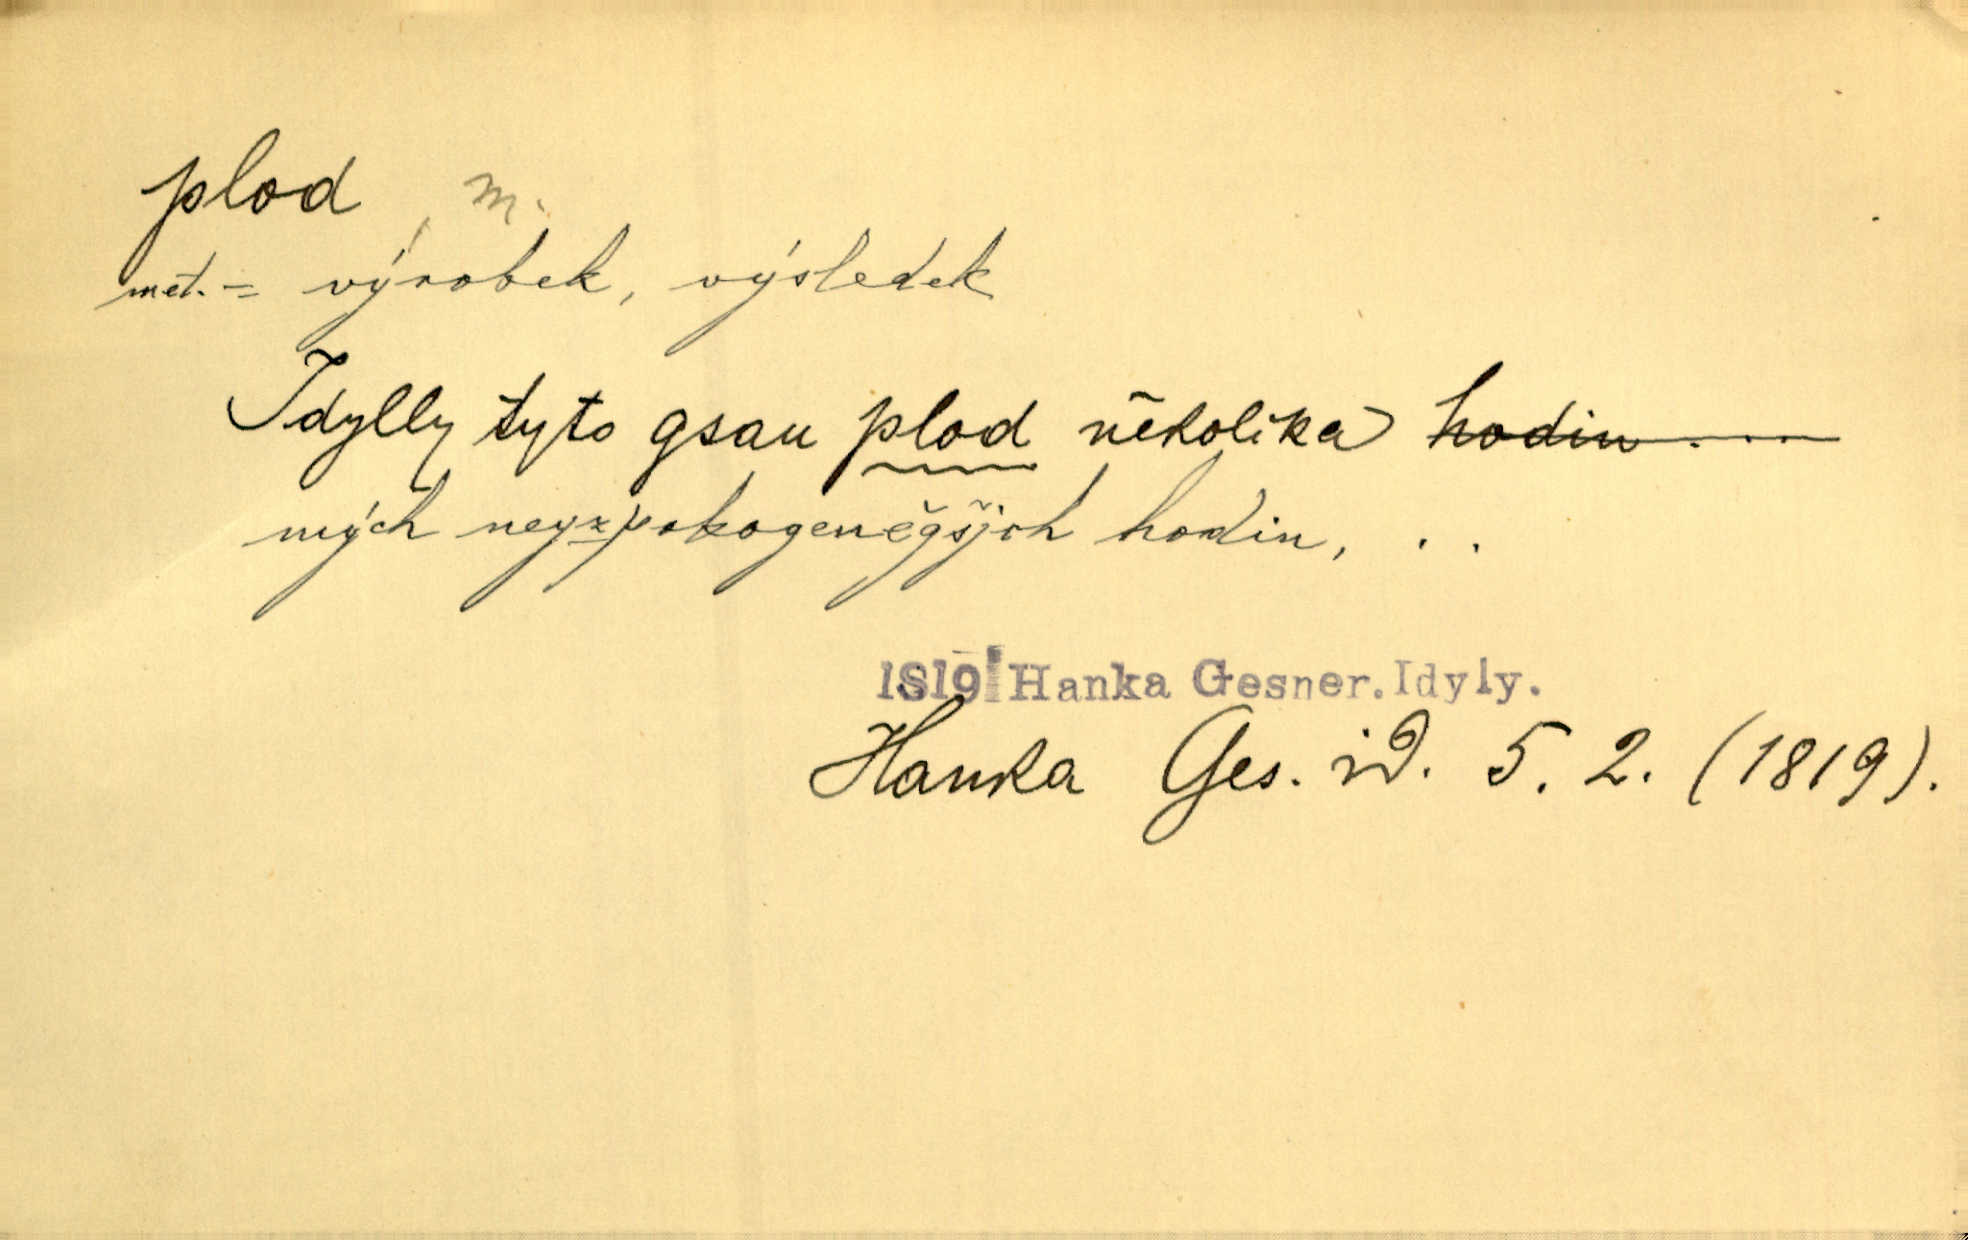 plod, m.
met. = výrobek, výsledek
Idylly tyto gsau plod několika hodin....
mých neyzpokogeněgšjch hodin, . .
1819 Hanka Gesner. Idyly.
Hanka Ges. id. 5. 2. (1819).